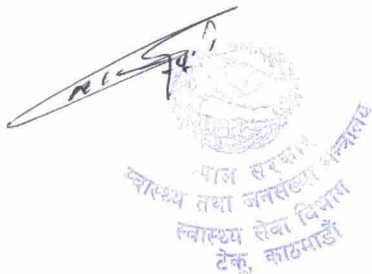 पाल सरकार
स्वास्थ्य तथा जनसंख्या मन्त्रालय
स्वास्थ्य सेवा विभाग
टेकु, काठमाडौं